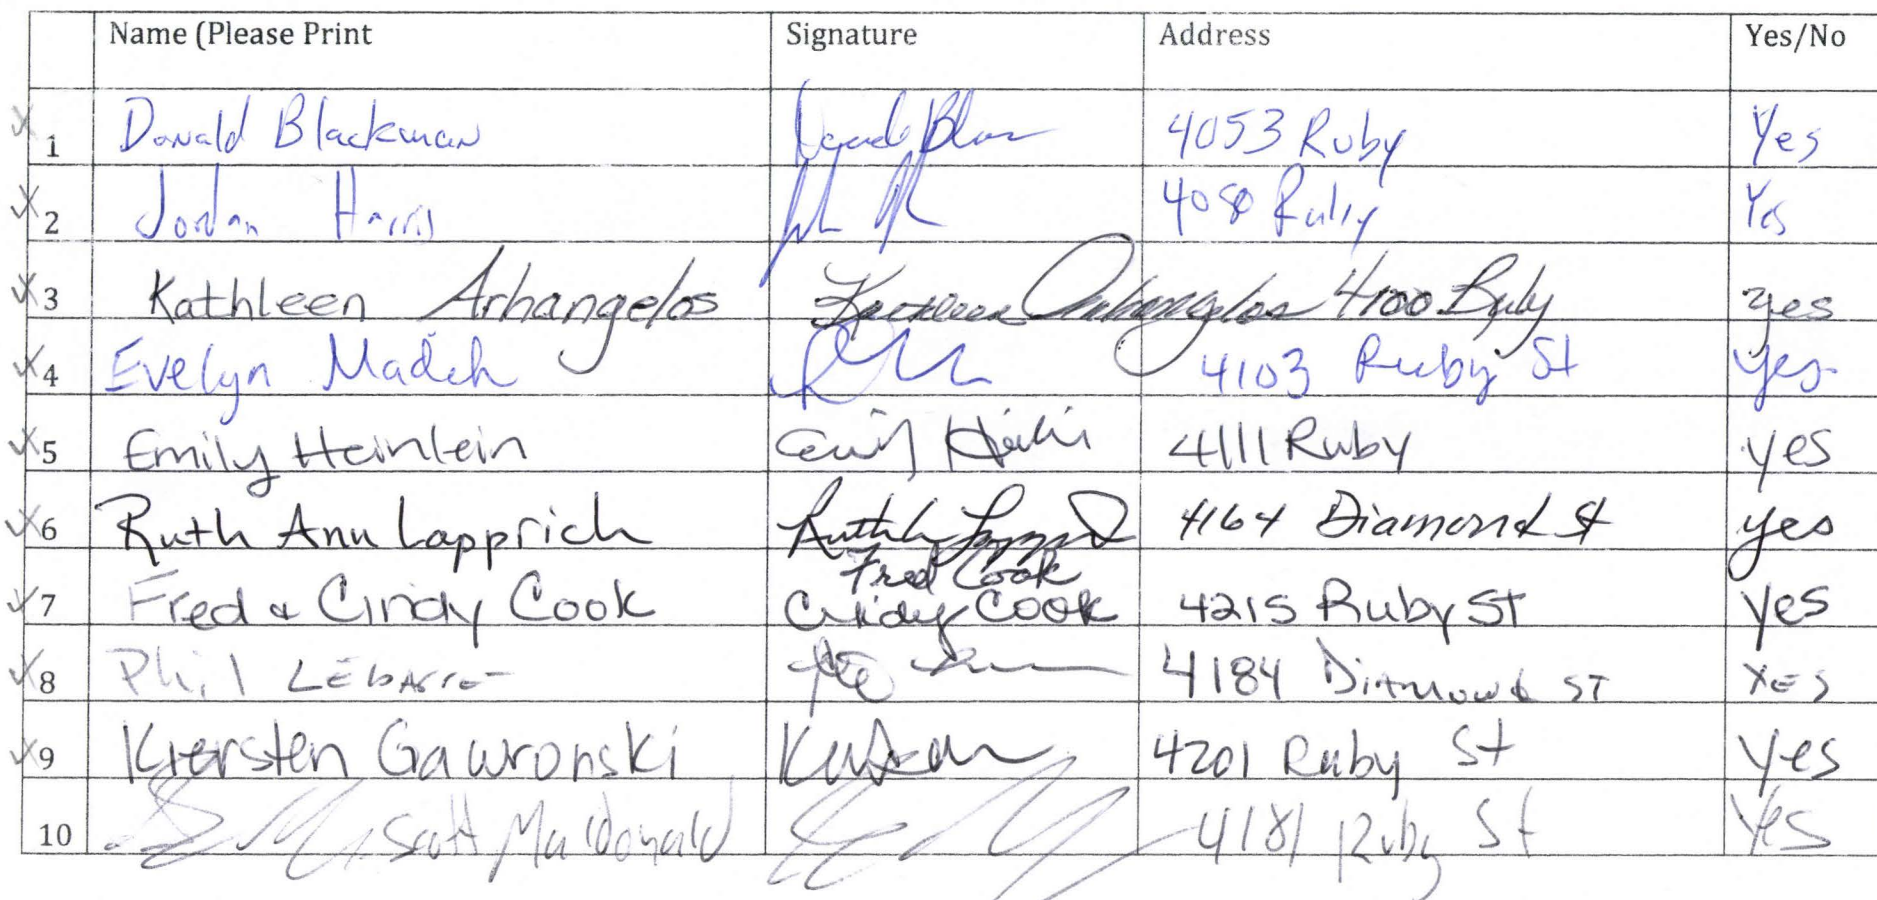 Name (Please Print Signature Address Yes/No
1 Donald Blackman 4053 Ruby Yes
2 Jordan Harris Ruby Yes
3 Kathleen Arhangelos Kathleen Arhangelos 4100 Ruby yes
4 Evelyn Madeh 4103 Ruby St yes
5 Emily Heinlein 4111 Ruby yes
6 Ruth Ann Lapprich 4164 Diamond St yes
Fred Cook
7 Fred & Cindy Cook Cindy Cook 4215 Ruby ST yes
8 Phil 4184 Diamond ST YES
9 Kiersten Gawronski 4201 Ruby St Yes
10 Scott MacDonald 4181 Ruby St Yes